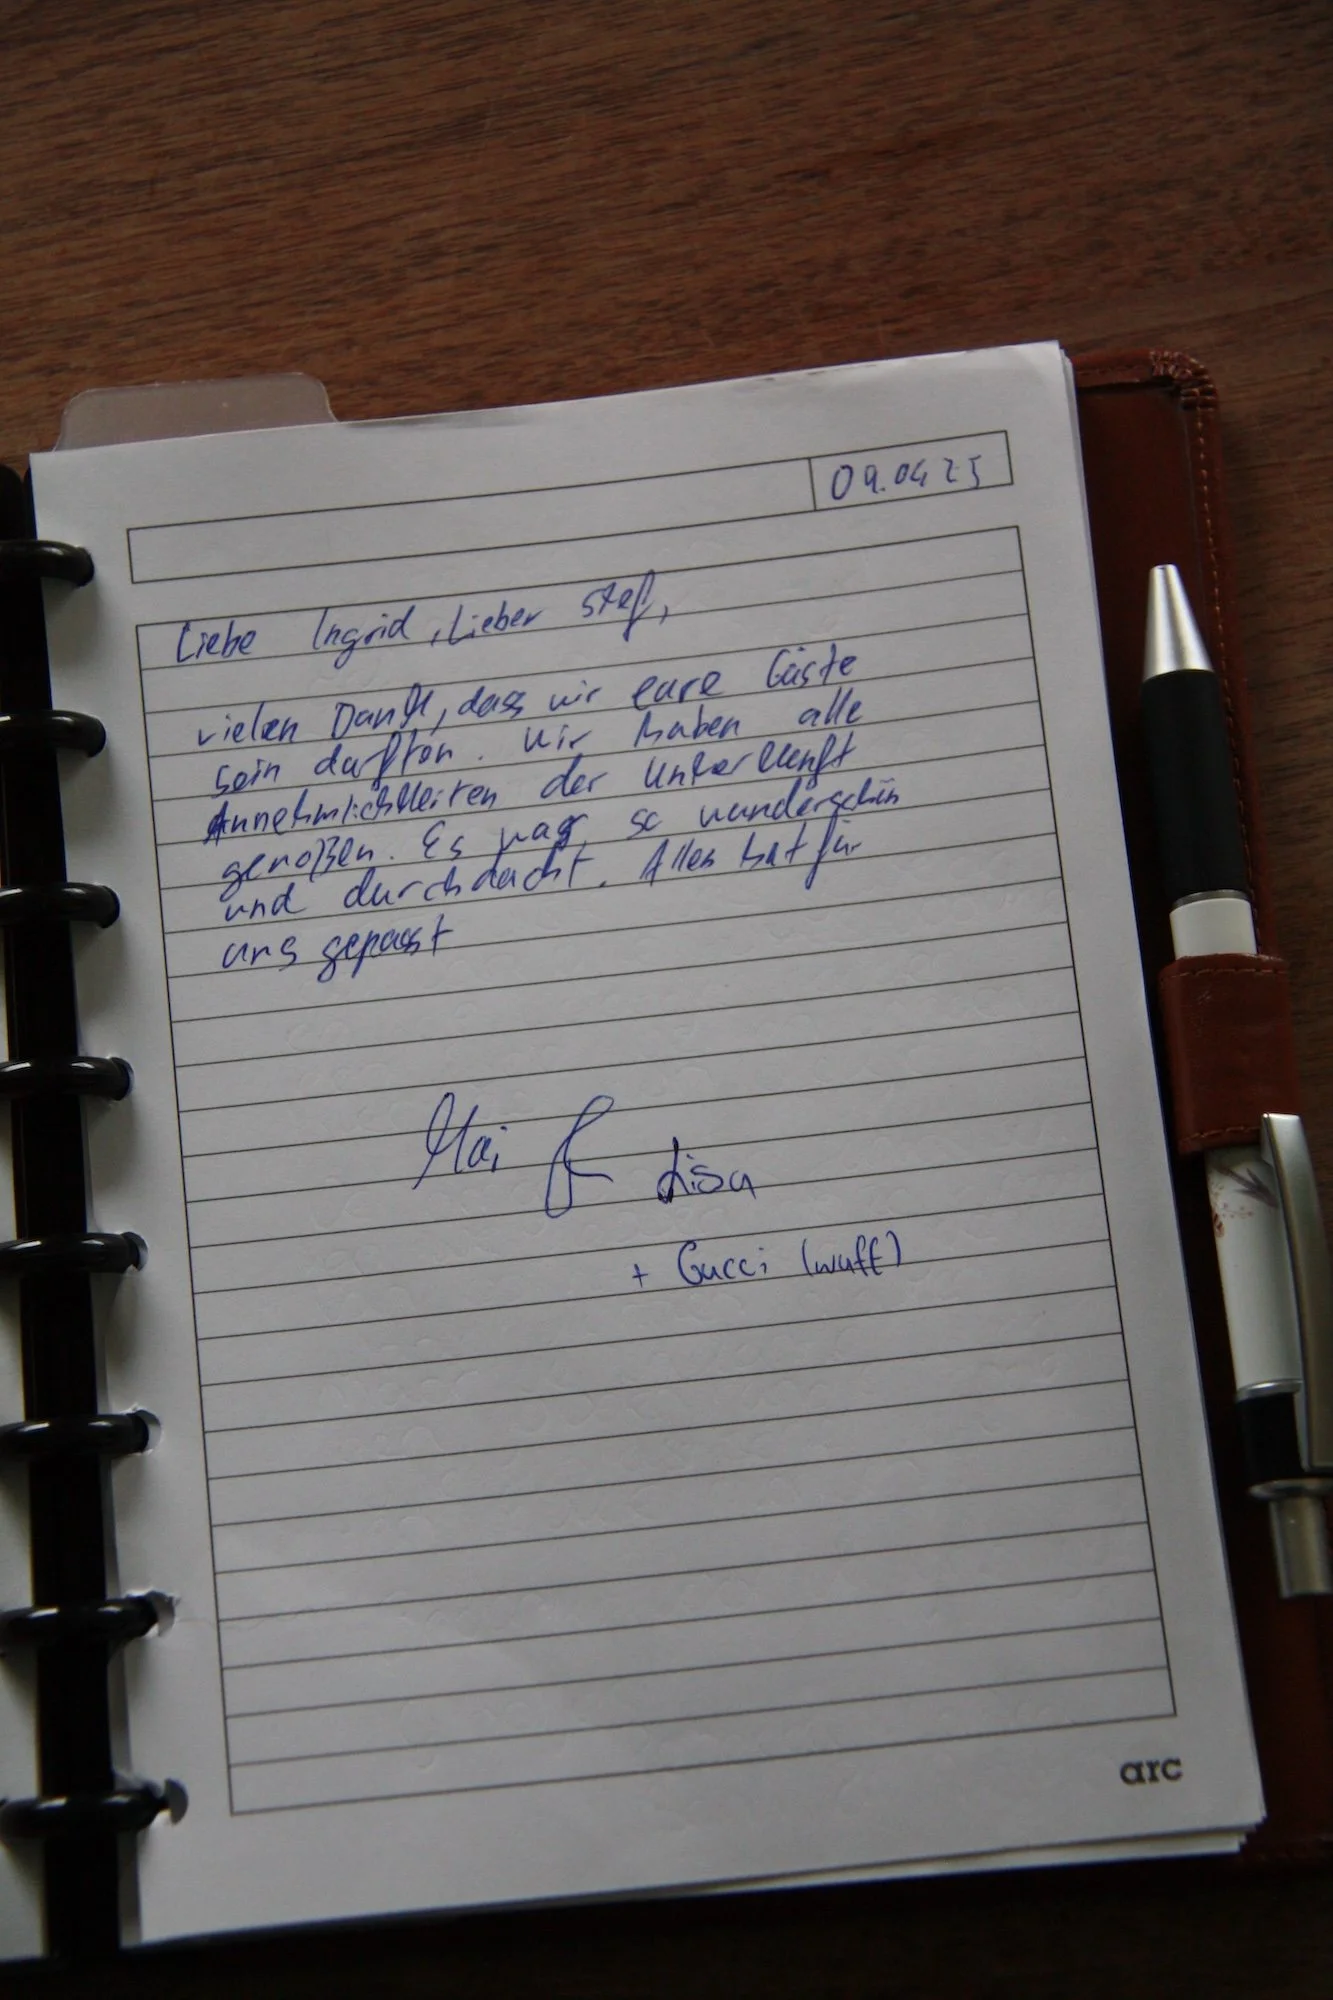 09.04 25
Liebe Ingrid, Lieber Stef,
vielen Dank, dass wir eure Gäste
sein durften. Wir haben alle
Annehmlichkeiten der Unterkunft
genoßen. Es war so wunderschön
und durchdacht. Alles hat für
uns gepasst
Mai & Lisa
+ Gucci (wuff)
arc